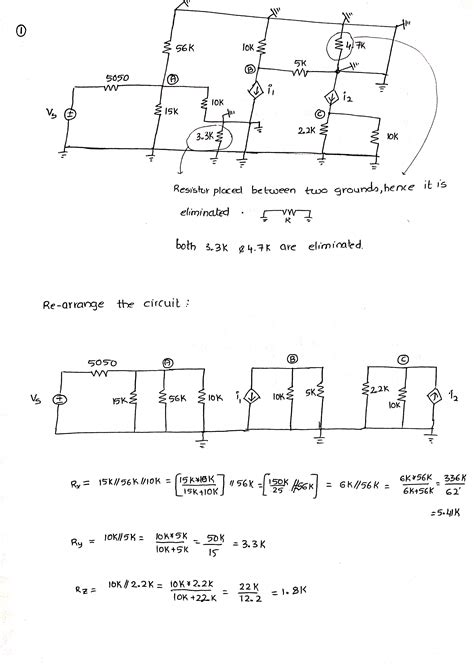 ①
56K
10K
4.7K
5050
Ⓐ
Ⓑ
5K
Vs
15K
10K
i1
i2
Ⓒ
3.3K
2.2K
10K
Resistor placed between two grounds, hence it is
eliminated.
R
both 3.3K & 4.7K are eliminated.
Re-arrange the circuit :
5050
Ⓐ
Ⓑ
Ⓒ
Vs
15K
56K
10K
i1
10K
5K
2.2K
10K
i2
Rx = 15K//56K//10K = [15K*10K / 15K+10K] // 56K = [150K / 25 // 56K] = 6K//56K = 6K*56K / 6K+56K = 336K / 62
= 5.41K
Ry = 10K//5K = 10K*5K / 10K+5K = 50K / 15 = 3.3K
RZ = 10K // 2.2K = 10K*2.2K / 10K+2.2K = 22K / 12.2 = 1.8K